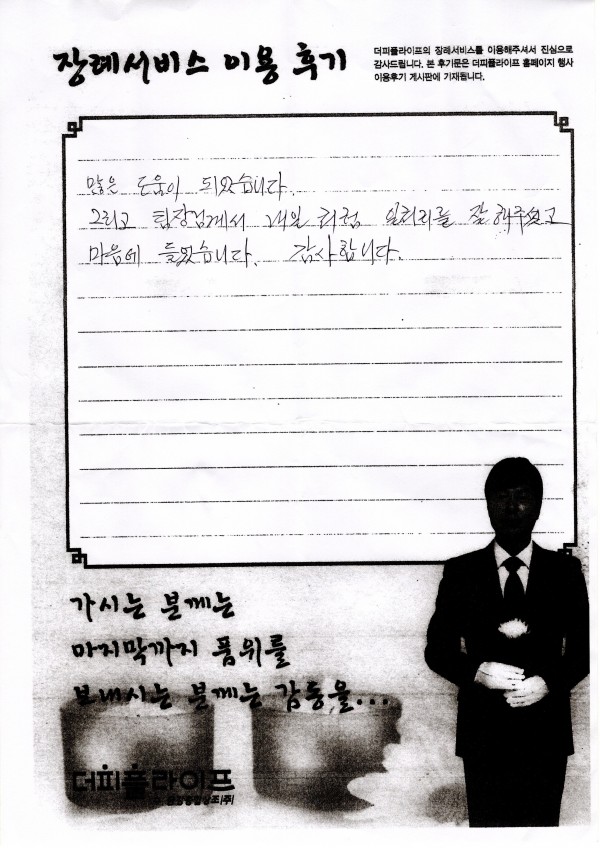 장례서비스 이용 후기
더피플라이프의 장례서비스를 이용해주셔서 진심으로
감사드립니다. 본 후기문은 더피플라이프 홈페이지 행사
이용후기 게시판에 기재됩니다.
많은 도움이 되었습니다.
그리고 팀장님께서 내일 처럼 일처리를 잘 해주셨고
마음에 들었습니다. 감사합니다.
가시는 분께는
마지막까지 품위를
보내시는 분께는 감동을...
더피플라이프